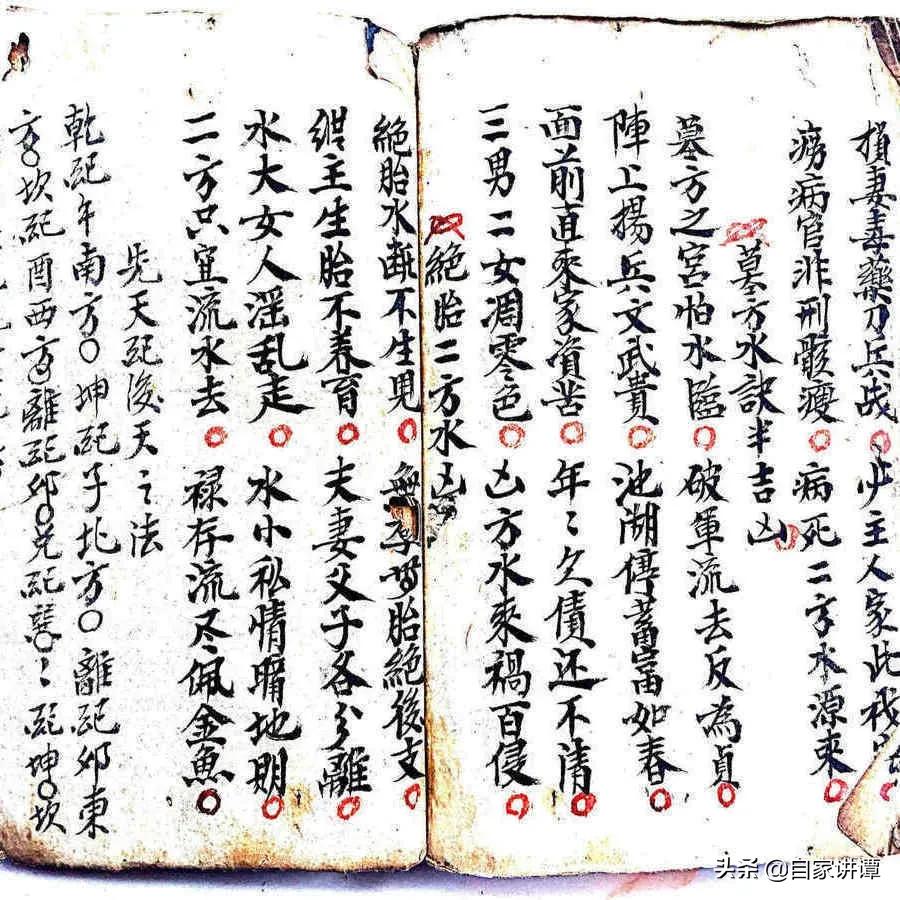 損妻毒藥刀兵战○少主人家此我
痨病官非刑骸瘦○病死二方水源來○
墓方水訣半吉凶
墓方之宮怕水臨○破軍流去反為貞○
陣上揚兵文武貴○池湖停蓄富如春○
面前直來家資苦○年〻久債还不清○
三男二女凋零色○凶方水來禍百侵○
絕胎二方水凶
絕胎水断不生児○無孕胎絕後支○
主生胎不养育○夫妻父子各分離○
水大女人淫乱走○水小私情暗地期○
二方只宜流水去○禄存流尽佩金魚○
先天後天之法
乾午南方○坤子北方○離卯東
方○坎酉西方○離卯○兌〻坤○坎
头条 @自家讲谭